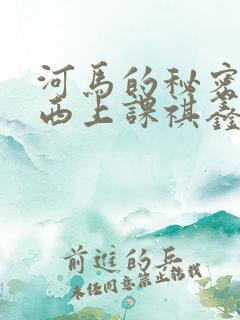 河馬的秘密
西上課祺鑫
前進的兵
未經同意禁止轉載